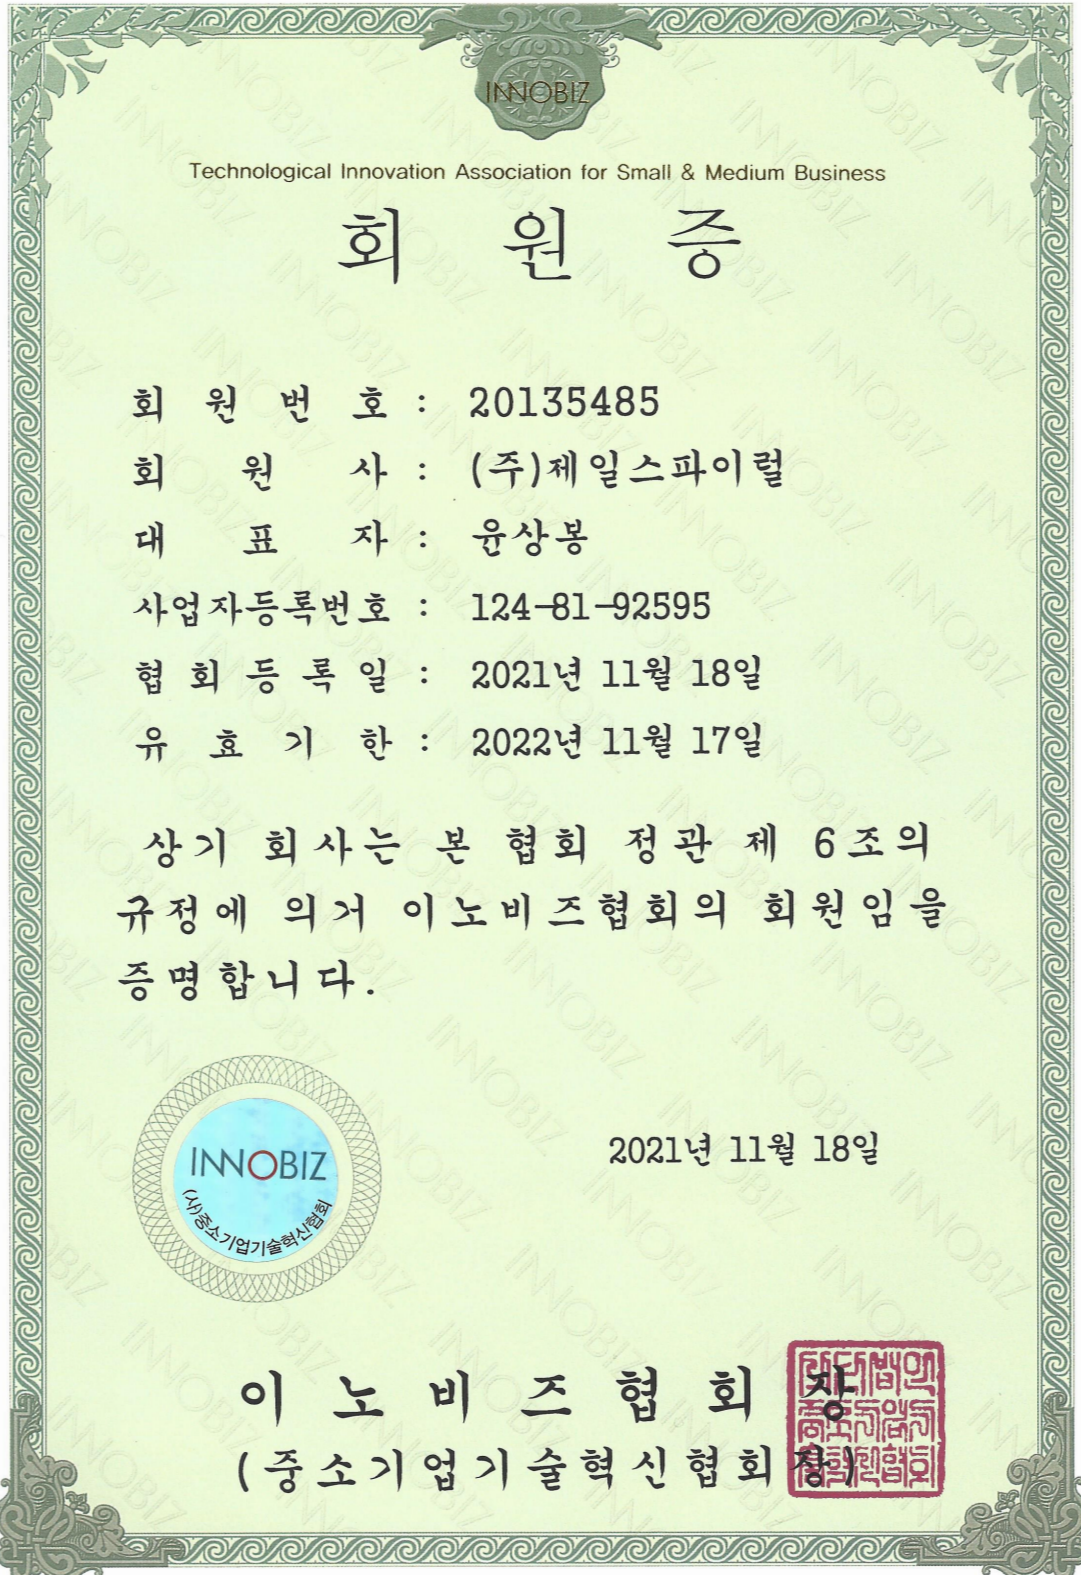 INNOBIZ
Technological Innovation Association for Small & Medium Business
회 원 증
회 원 번 호 : 20135485
회 원 사 : (주)제일스파이럴
대 표 자 : 윤상봉
사업자등록번호 : 124-81-92595
협 회 등 록 일 : 2021년 11월 18일
유 효 기 한 : 2022년 11월 17일
상기 회사는 본 협회 정관 제 6조의
규정에 의거 이노비즈협회의 회원임을
증명합니다.
2021년 11월 18일
INNOBIZ
(사)중소기업기술혁신협회
이 노 비 즈 협 회 장
(중소기업기술혁신협회장)